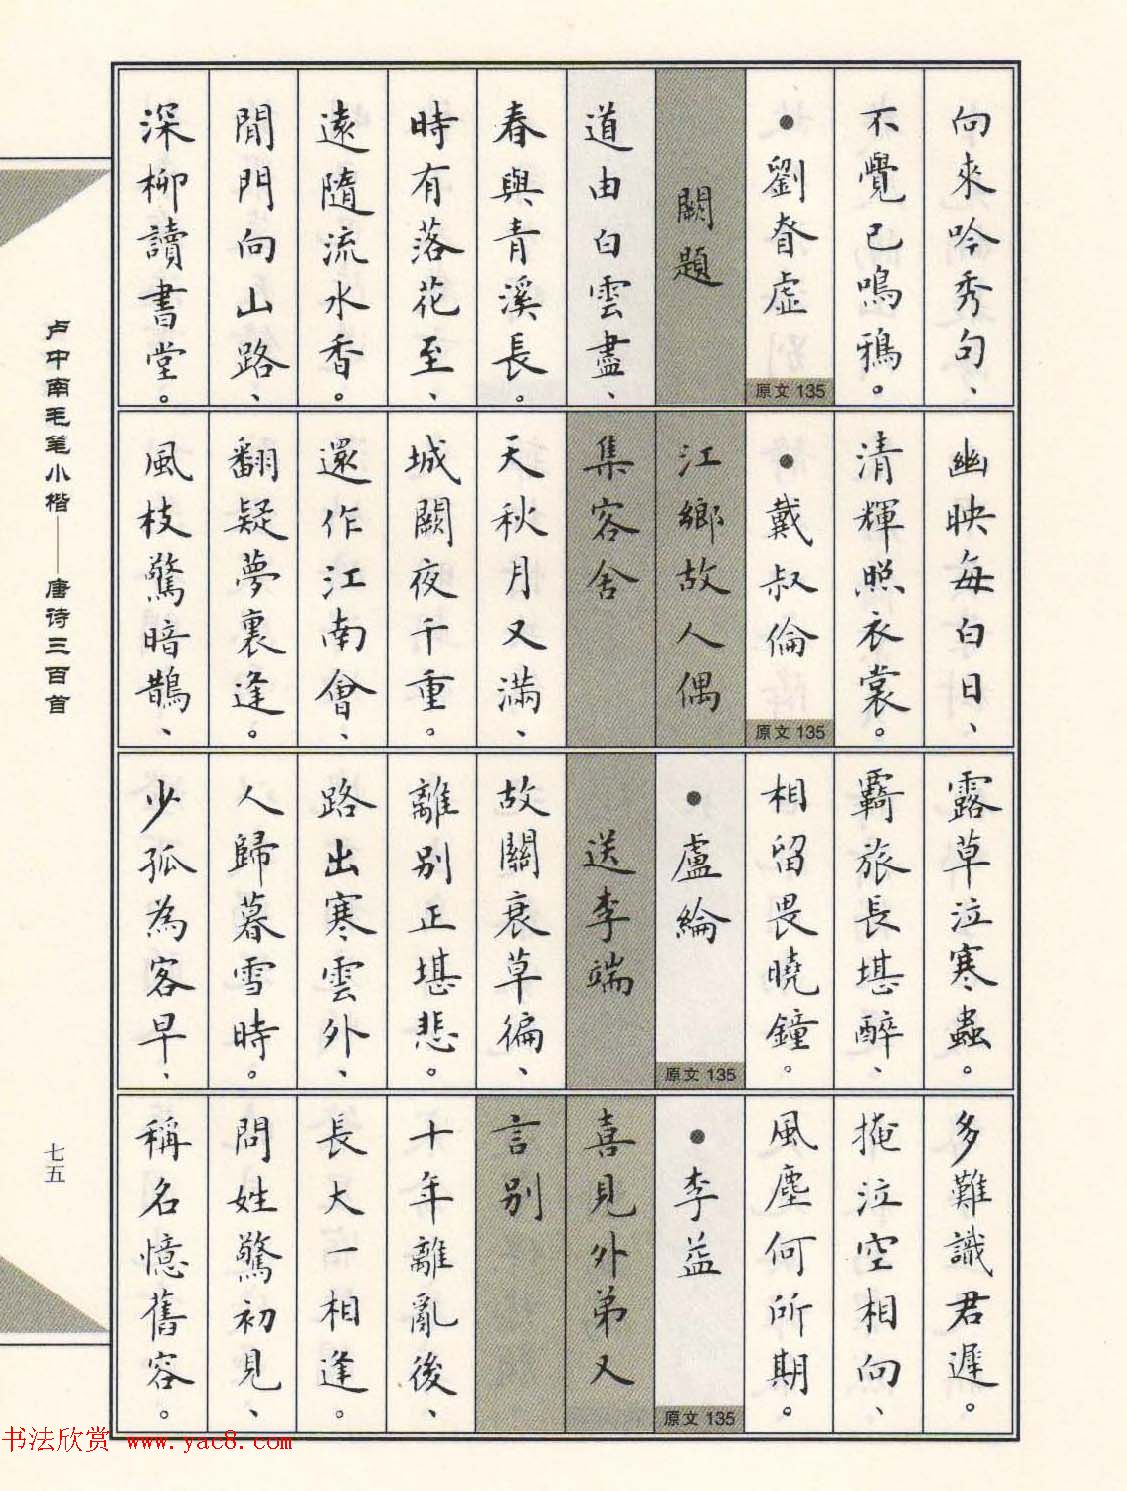 向來吟秀句、
不覺已鳴鴉。
●劉眘虛
原文 135
闕題
道由白雲盡、
春與青溪長。
時有落花至、
遠隨流水香。
閒門向山路、
深柳讀書堂。
幽映每白日、
清輝照衣裳。
●戴叔倫
原文 135
江鄉故人偶
集客舍
天秋月又滿、
城闕夜千重。
還作江南會、
翻疑夢裏逢。
風枝驚暗鵲、
露草泣寒蟲。
羇旅長堪醉、
相留畏曉鐘。
●盧綸
原文 135
送李端
故關衰草徧、
離別正堪悲。
路出寒雲外、
人歸暮雪時。
少孤為客早、
多難識君遲。
掩泣空相向、
風塵何所期。
●李益
原文 135
喜見外弟又
言別
十年離亂後、
長大一相逢。
問姓驚初見、
稱名憶舊容。
卢中南毛笔小楷——唐诗三百首
七五
书法欣赏 www.yac8.com